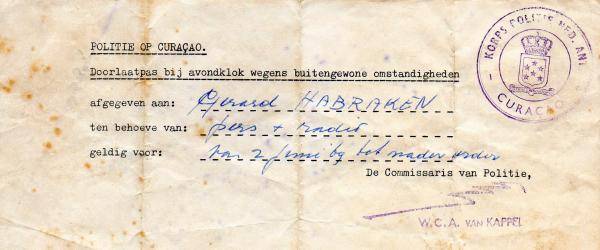 POLITIE OP CURAÇAO.
Doorlaatpas bij avondklok wegens buitengewone omstandigheden
afgegeven aan: Gerard HABRAKEN
ten behoeve van: pers + radio
geldig voor: van 2 Juni bij tot nader order
De Commissaris van Politie,
W.C.A. VAN KAPPEL
KORPS POLITIE NED. ANT
CURAÇAO